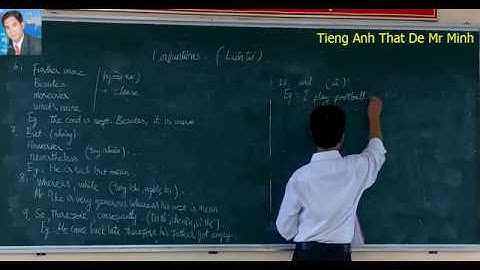 Tieng Anh That De Mr Minh
(Liên từ)
6, Further more
besides
moreover
what's more
+ clause
Eg the coat is soft. Besides, it is warm.
7, But (nhưng)
However
nevertheless (tuy nhiên ...
Eg: He is rich but mean
8, Whereas, while (trong khi,
he is very generous whereas his wife is mean
9, So, therefore,
Eg. He came back late therefore his father got angry.
and
Eg: I play football